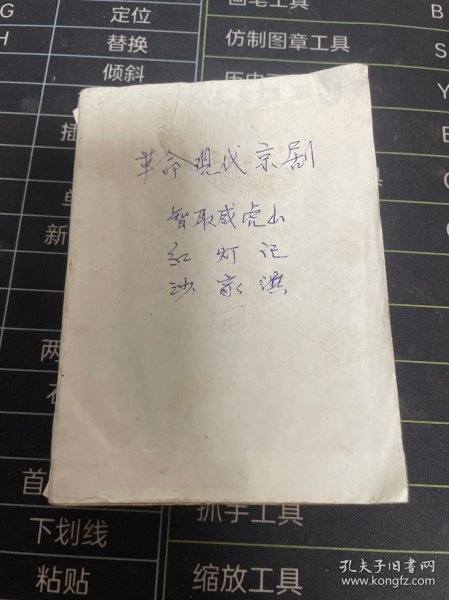 G
定位
画笔工具
B
H
替换
仿制图章工具
S
倾斜
Y
革命现代京剧
智取威虎山
红灯记
沙家浜
新
两
首
下划线
抓手工具
粘贴
缩放工具
孔夫子旧书网
www.kongfz.com